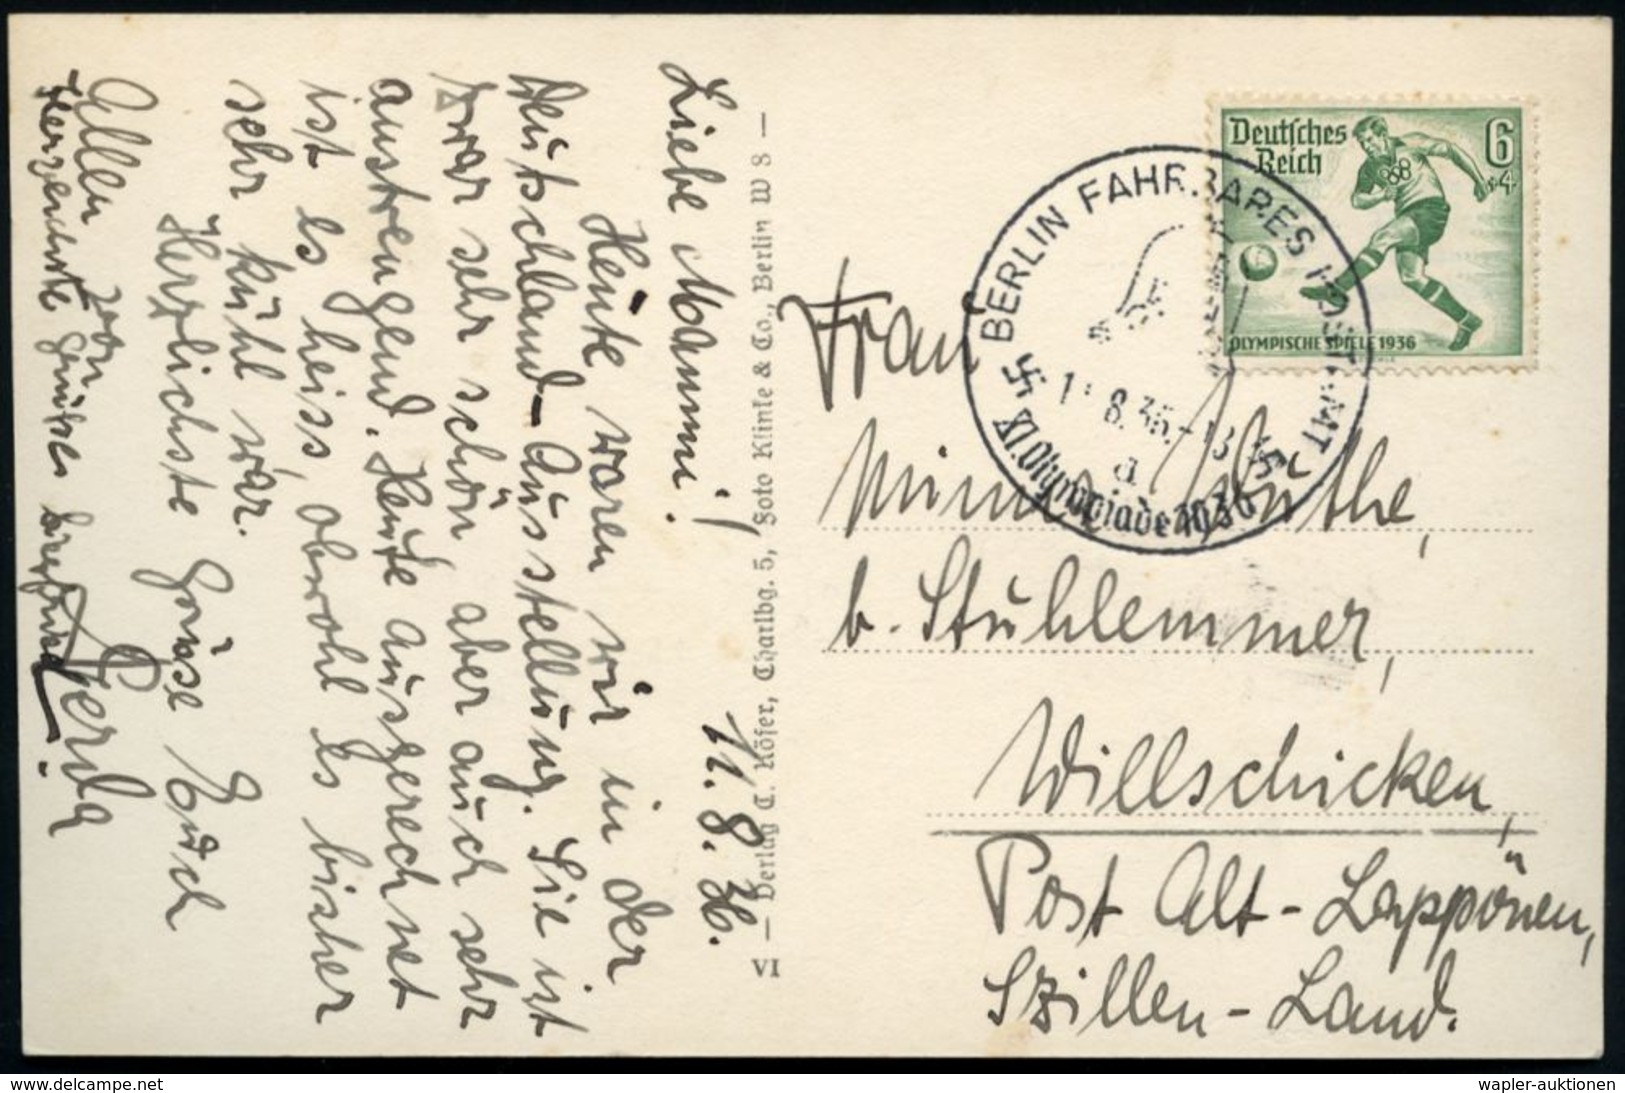 Liebe Mammi!
11.8.36.
Heute waren wir in der
Deutschland-Ausstellung. Sie ist
zwar sehr schön, aber auch sehr
anstrengend. Heute ausgerechnet
ist es heiss, obwohl es bisher
sehr kühl war.
Herzlichste Grüsse Euch
Allen von
Gerda
Herzlichste Grüsse
VI – Verlag C. Köfer, Charlbg. 5, Foto Klinke & Co., Berlin W 8 –
Deutsches
Reich
6
+4
OLYMPISCHE SPIELE 1936
BERLIN FAHRBARES POSTAMT
8.36.-13
a
XI. Olympiade 1936
Frau
Minna
b. Stuhlemmer,
Willschicken,
Post Alt-Lappönen,
Szillen-Land.
© wapler-auktionen.de
wapler-auktionen